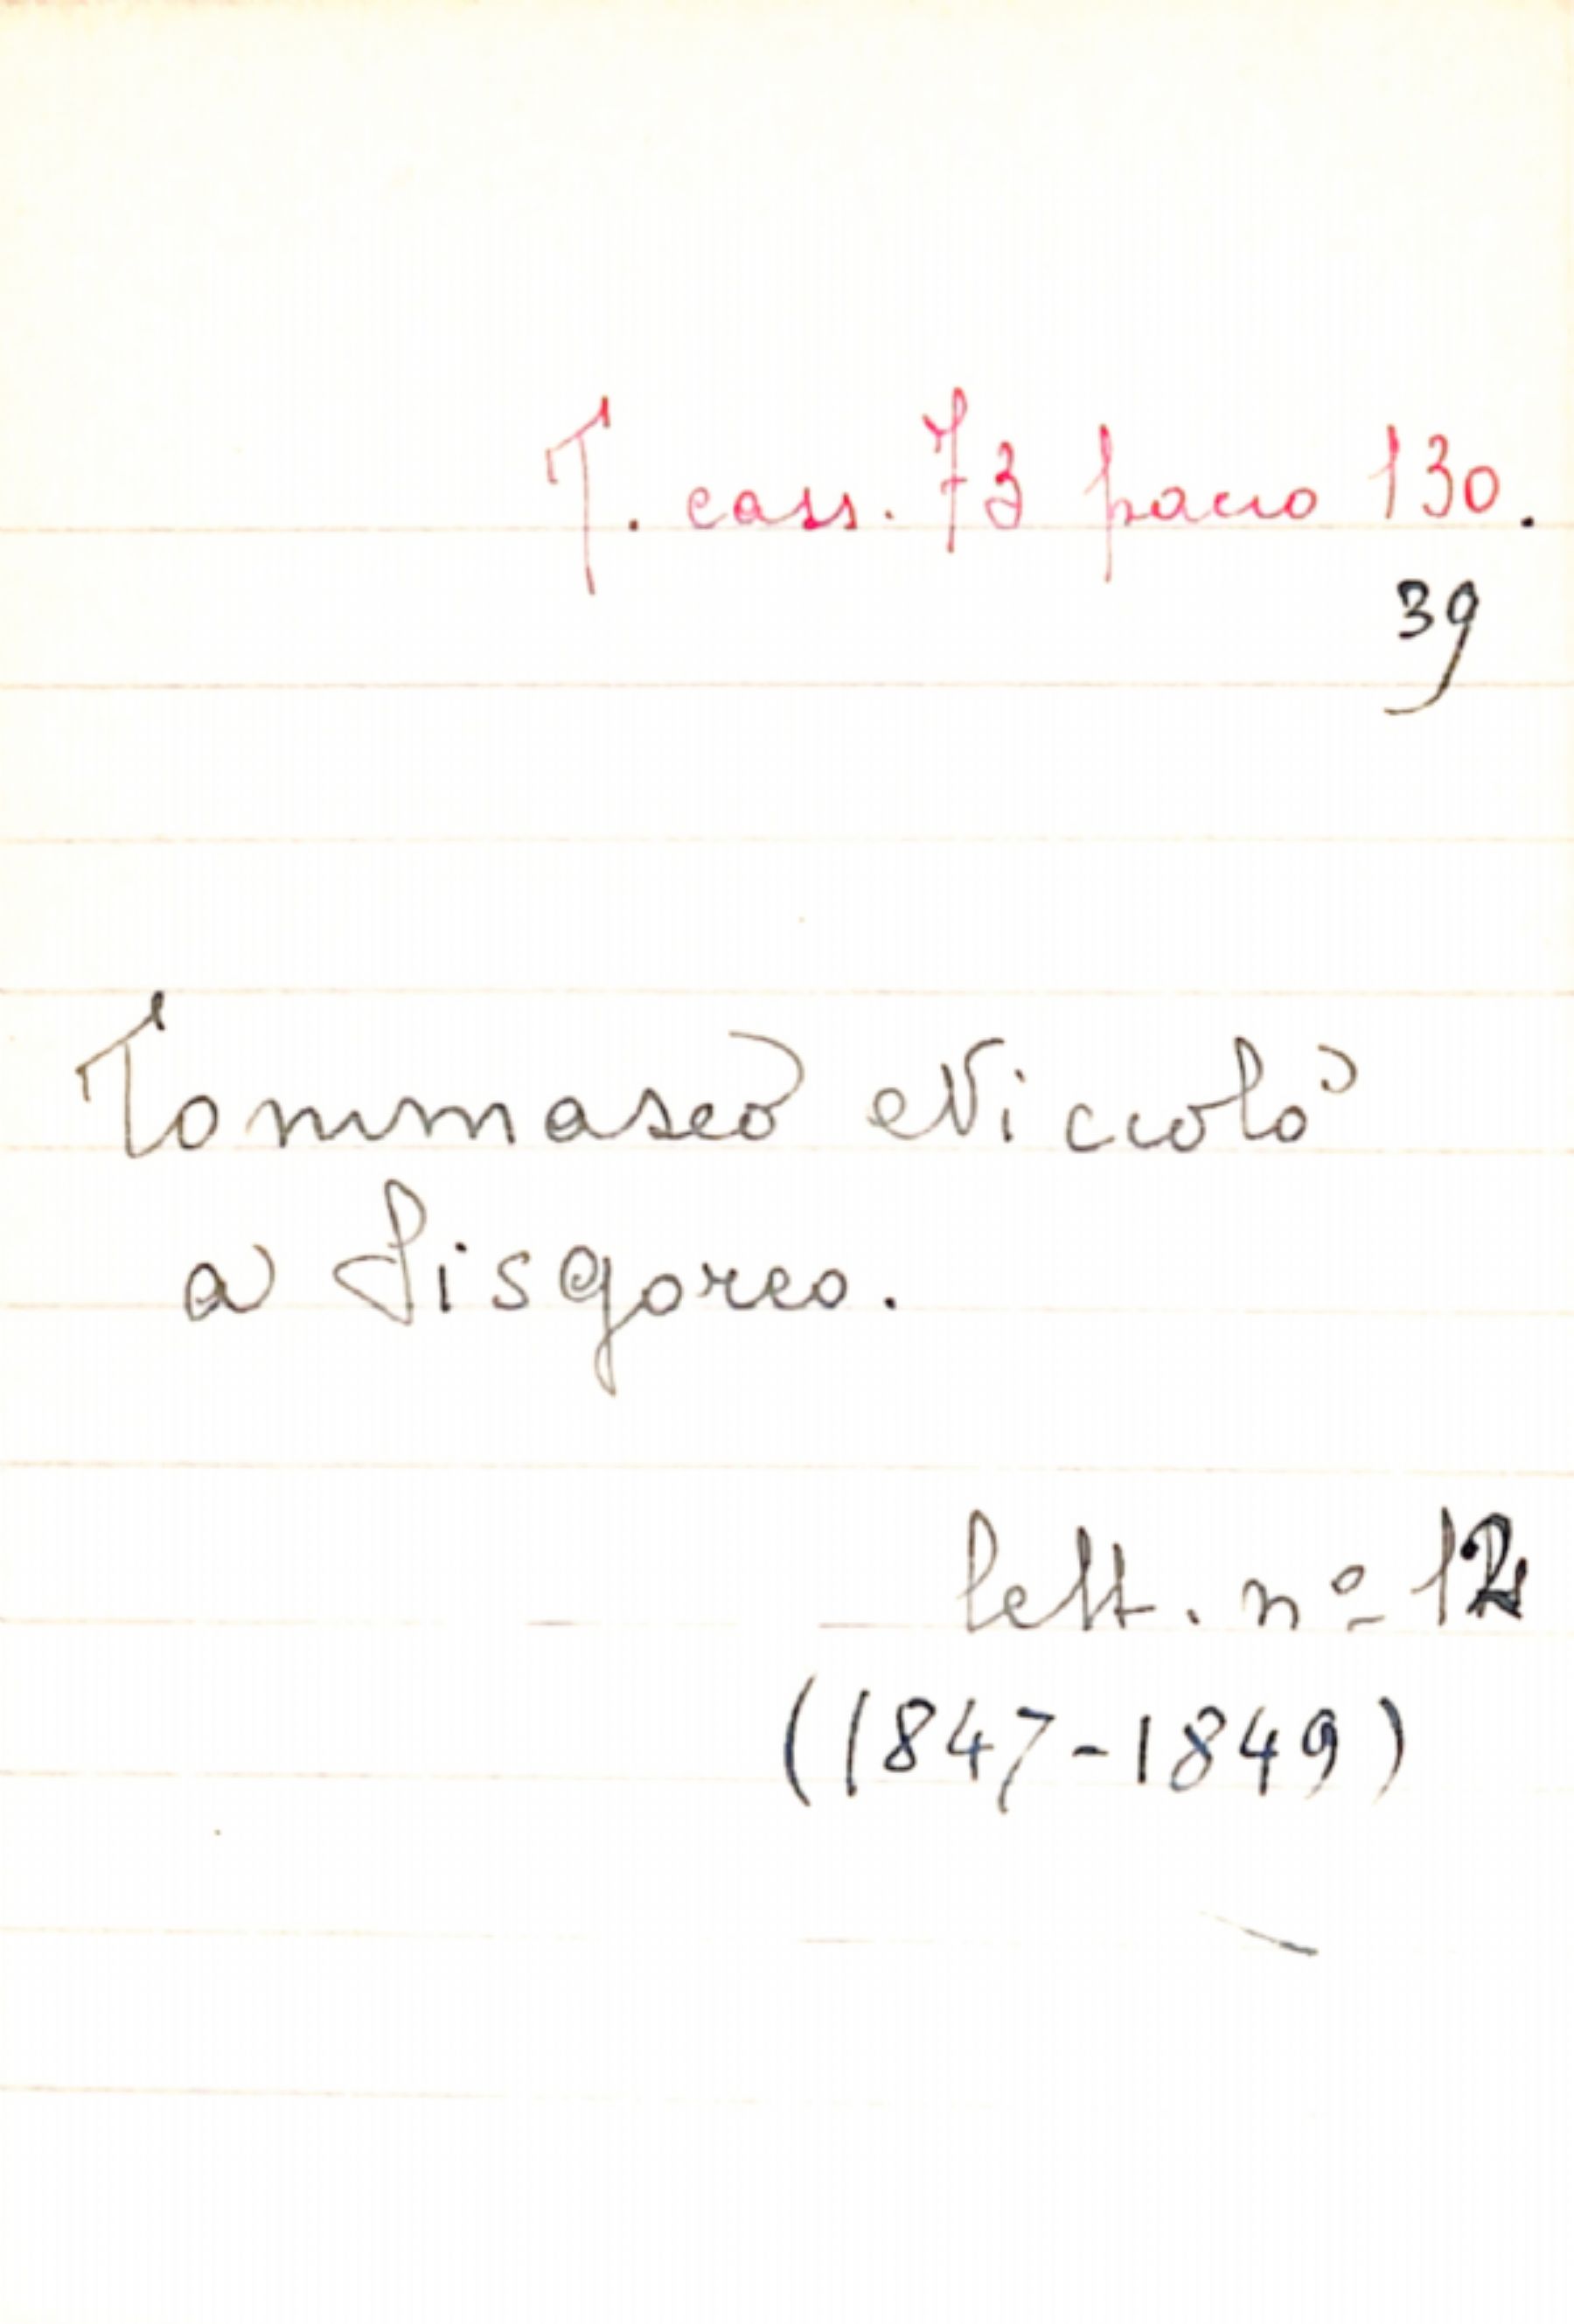 T. cass. 73 pacco 130.
39
Tommaseo Niccolò
a Sisgoreo.
lett. nº 12
(1847-1849)